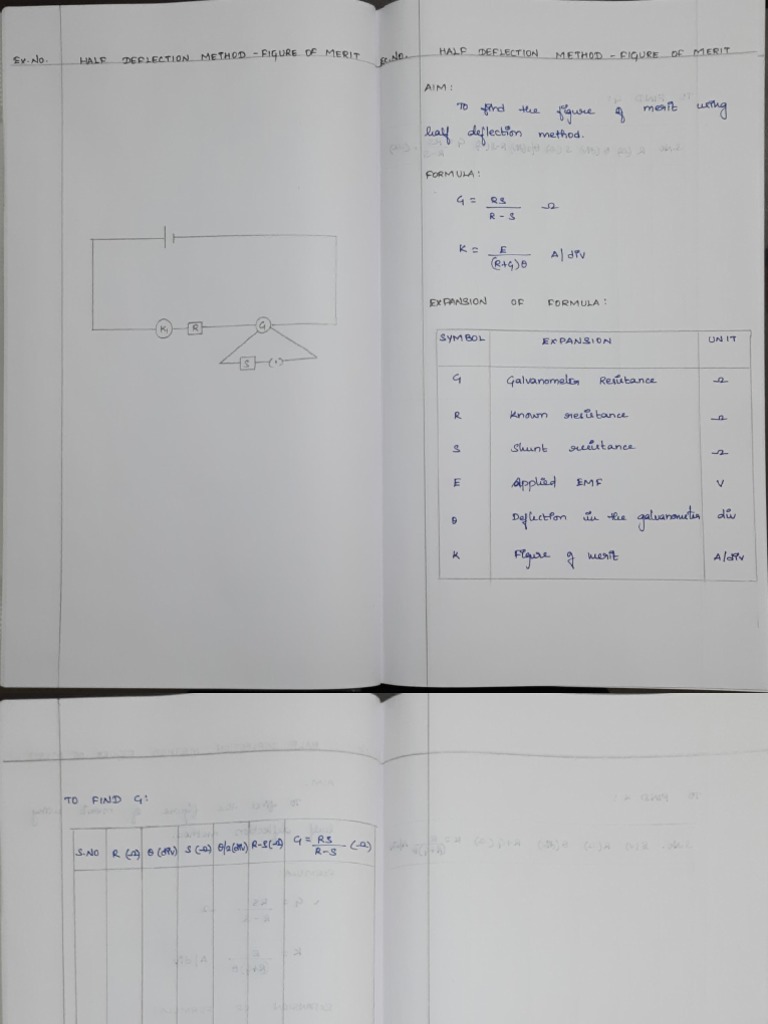 Ex.No. HALF DEFLECTION METHOD - FIGURE OF MERIT
K₁ R G
S
HALF DEFLECTION METHOD - FIGURE OF MERIT
AIM:
To find the figure of merit using
half deflection method.
FORMULA:
G = RS / R - S Ω
K = E / (R+G)θ A/div
EXPANSION OF FORMULA:
SYMBOL EXPANSION UNIT
G Galvanometer Resistance Ω
R Known resistance Ω
S Shunt resistance Ω
E Applied EMF V
θ Deflection in the galvanometer div
K Figure of merit A/div
TO FIND G:
S.NO R (Ω) θ (div) S (Ω) θ/2 (div) R-S (Ω) G = RS / R-S (Ω)